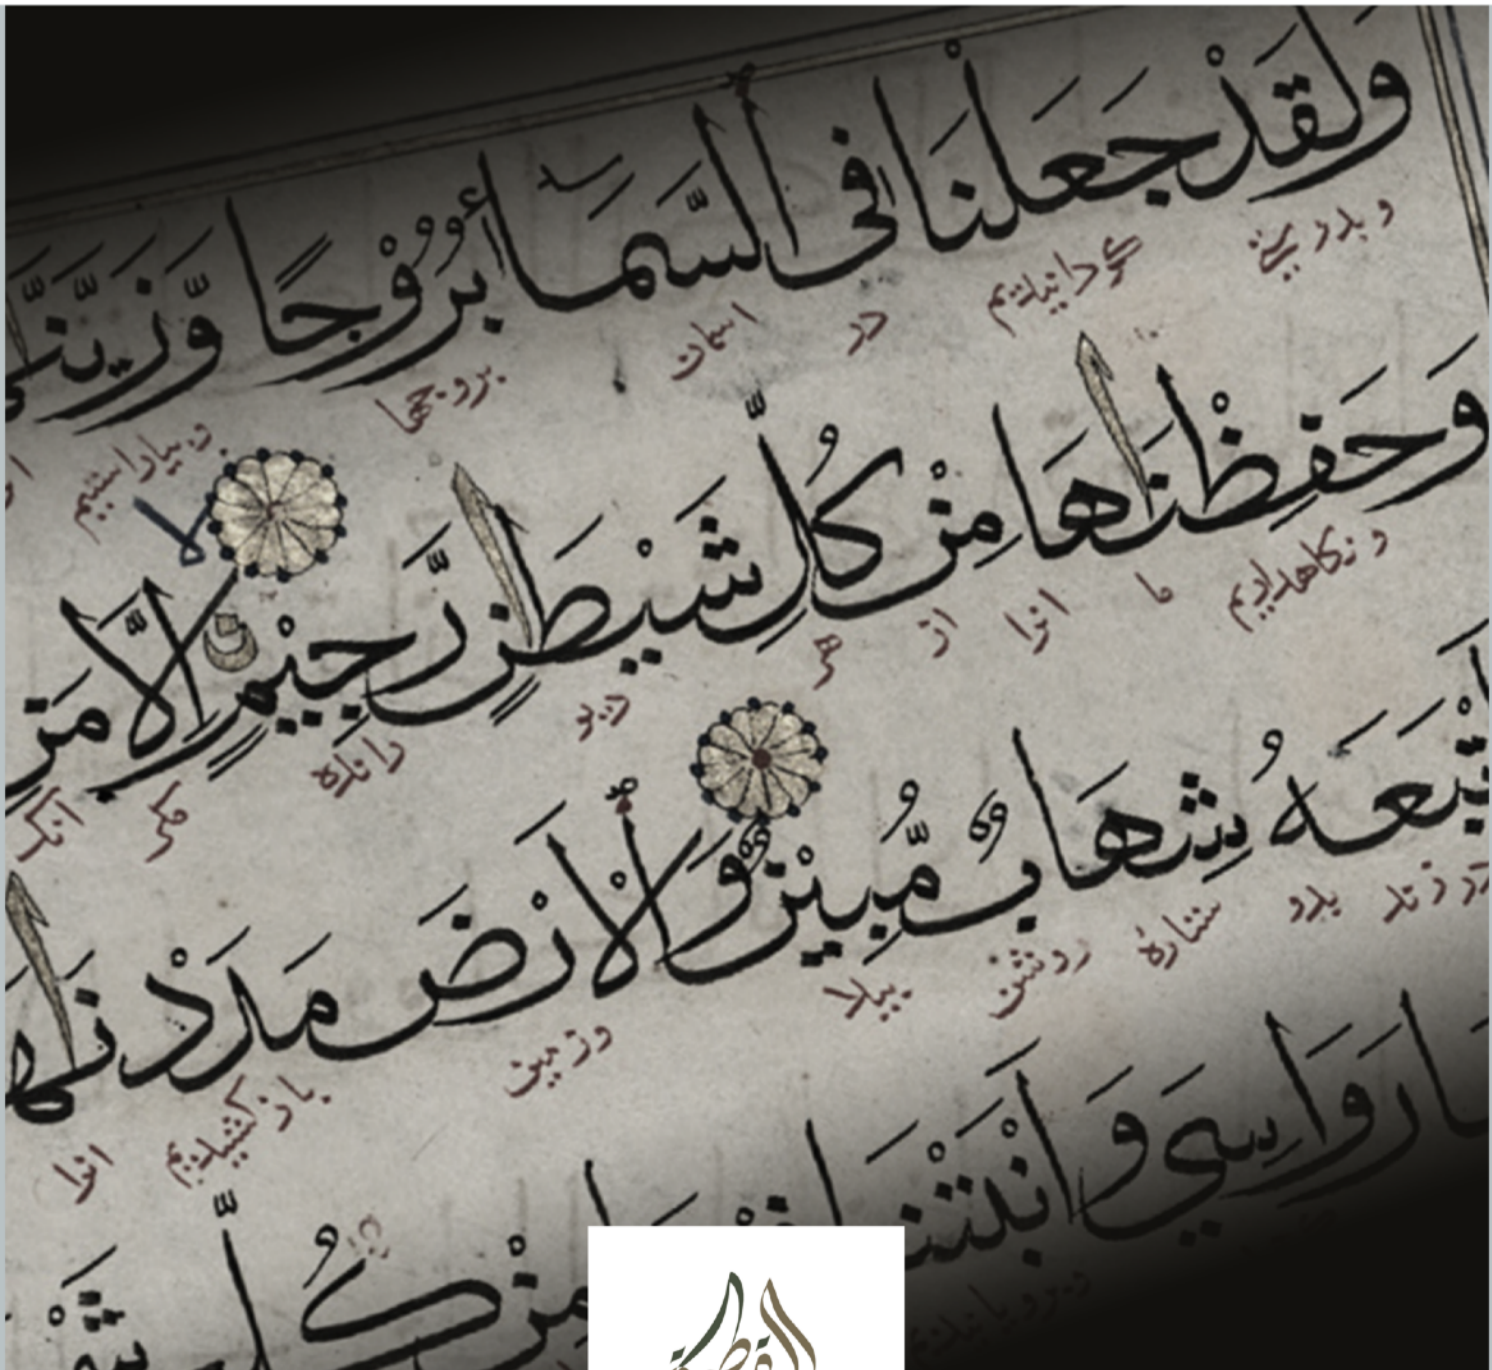 وَلَقَدْ جَعَلْنَا فِی السَّمَآءِ بُرُوْجًا وَّزَیَّنّٰ
و بدرستی گردانیدیم در اسمان بروجها و بیاراستیم
وَحَفِظْنٰهَا مِنْ كُلِّ شَیْطٰنٍ رَّجِیْمٍ لا اِلَّا مَنِ
و نکاهدادیم ما انرا از هر دیو رانده مکر انک
تْبَعَهٗ شِهَابٌ مُّبِیْنٌ وَالْاَرْضَ مَدَدْنٰهَا
بدو ستارهٔ روشن پیدا و زمین باز کشیدیم انرا
رَوَاسِیَ وَاَنْبَتْنَا
مِنْ كُلِّ